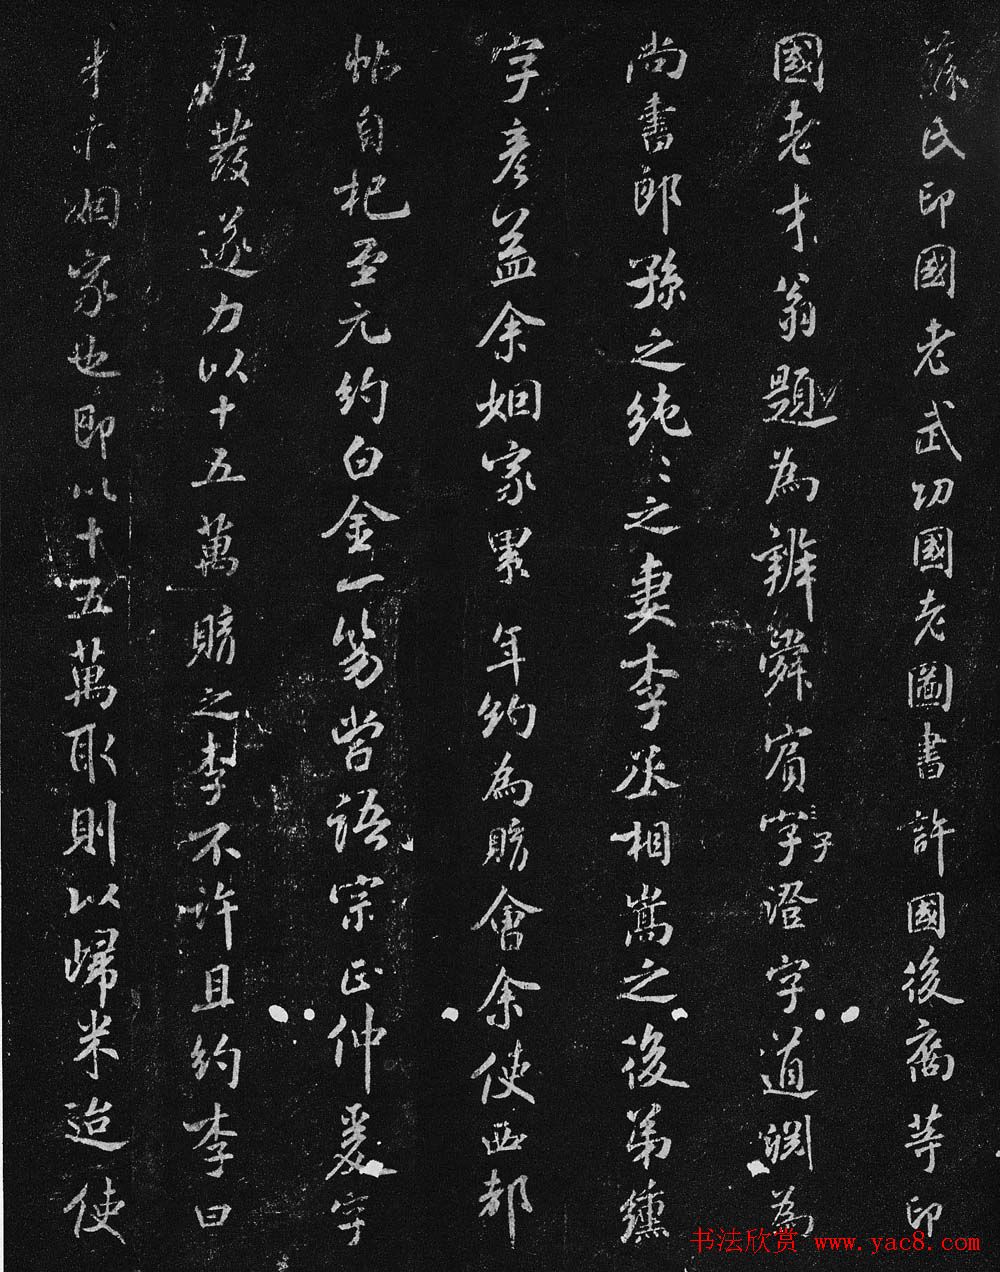 蘇氏印國老武功國老圖書許國後裔等印
國老才翁題為辨舜賓字子澄字道淵為
尚書郎孫之純之純之妻李丞相嵩之後弟纁
字彥益余姻家累年約為購會余使西都
帖自杞至元約白金一笏嘗語宗正仲爰字
君發遂力以十五萬購之李不許且約李曰
米姻家也即以十五萬取則以歸米迨使
书法欣赏 www.yac8.com